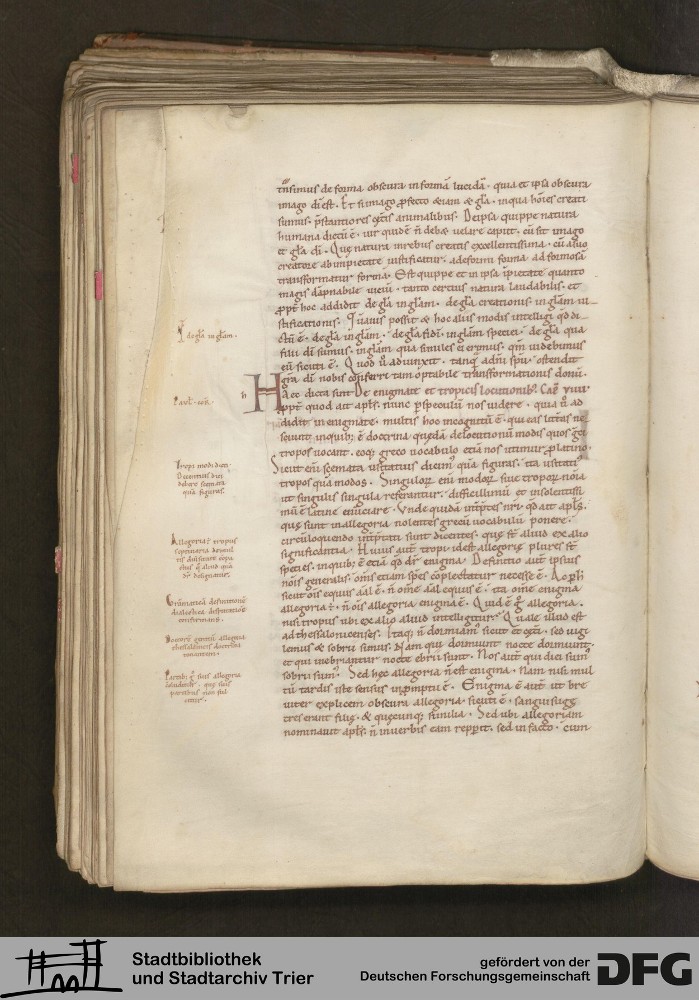 tīsimus de forma obscura in formā lucidā. quia et ipsa obscura
imago dī est. Et si imago profecto etiam & gła. in qua hōies creati
sumus. p̄stantiores cęteris animalibus. De ipsa quippe natura
humana dictū ē. uir quidē n̄ debet uelare caput. cū sit imago
et gła dī. Quę natura in rebus creatis excellentissima. cū a suo
creatore ab impietate iustificatur. a deformi forma ad formosā
transformatur formā. Est quippe et in ipsa īpietate quanto
magis dāpnabile uiciū. tanto certius natura laudabilis. et
ꝓpt̄ hoc addidit de gła in głam. de gła creationis in głam iu-
stificationis. Quāuis possit & hoc aliis modis intelligi qđ di-
ctū ē. de gła in głam. de gła fidei in głam speciei. de gła qua
filii dī sumus. in głam qua similes ei erimus. qm̄ uidebimus
eū sicuti ē. Quod ů adiunxit. tanq̄ a dn̄i spū. ostendit
grā dī nobis conferri tam optabile transformationis donū.
Haec dicta sunt De enigmate et tropicis locutionib;. Cap̄ VIIII
ꝓpt̄ quod ait apłs. nunc p speculū nos uidere. quia ů ad
didit in enigmate. multis hoc incognitū ē. qui eas litt̄as ne-
sciunt in quib; ē doctrina quędā de locutionū modis quos g̅ci
tropos uocant. eoq; greco uocabulo etiā nos utimur p latino.
Sicut enī scemata usitatius dicim; quā figuras. ita usitati;
tropos quā modos. Singulorꝝ enī modorꝝ siue troporꝝ noīa
ut singulis singula referantur. difficillimū et insolentissi
mū ē latine enunciare. Vnde quidā int̄ptes nr̄i. qđ ait apłs.
quę sunt in allegoria nolentes grecū uocabulū ponere.
circūloquendo int̄ptati sunt dicentes. quę st̄ aliud ex alio
significantia. Huius aut̄ tropi id est allegorię plures st̄
species. in quib; ē etiā qđ dr̄ enigma. Definitio aut̄ ipsius
nōis generalis. om̄s etiam sp̄es cōplectatur necesse ē. Ac p h̄
sicut ōis equus aał ē. n̄ om̄e aał equus ē. ita om̄e enigma
allegoria ē. n̄ ōis allegoria enigma ē. Quid ē g̊ allegoria.
nisi tropus ubi ex alio aliud intelligitur? Quale illud est
ad thessalonicenses. Itaq; n̄ dormiam; sicut et cęti. sed uigi
lemus & sobrii simus. Nam qui dormiunt nocte dormiunt.
et qui inebriantur nocte ebrii sunt. Nos aut̄ qui diei sum;
sobrii sim;. Sed hęc allegoria n̄ est enigma. Nam nisi mul
tū tardis iste sensus in promptu ē. Enigma ē aut̄ ut bre
uiter explicem obscura allegoria. sicuti ē. sanguisugę
tres erant filię. & quęcunq; similia. Sed ubi allegoriam
nominauit apłs. n̄ in uerbis eam repperit. sed in facto. cum
de gła in głam.
h
Tropi modi dicti
Decentius dici
debere scemata
quā figuras.
Allegoria ē tropus
Gramaticā definitione
dialectica
confirmare.
Stadtbibliothek
und Stadtarchiv Trier
gefördert von der
Deutschen Forschungsgemeinschaft
DFG